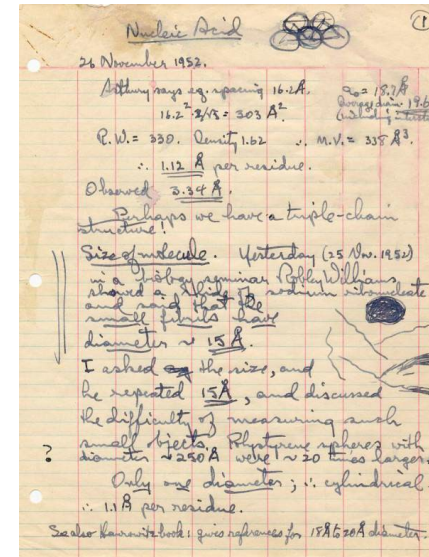 Nucleic Acid
(1
26 November 1952.
Astbury says eq. spacing 16.2Å.
a₀ = 18.7Å
Average diam. 19.6
16.2² · 2/√3 = 303 Å².
R.W. = 330. Density 1.62 ∴ M.V. = 338 Å³.
∴ 1.12 Å per residue.
Observed 3.34 Å.
Perhaps we have a triple-chain
structure!
Size of molecule. Yesterday (25 Nov. 1952)
in a biology seminar Robley Williams
showed a slide of sodium ribonucleate
and said that the
small fibrils have
diameter ~ 15Å.
I asked the size, and
he repeated 15Å, and discussed
the difficulty of measuring such
small objects. Polystyrene spheres with
? diameter ~250Å were ~ 20 times larger.
Only one diameter; ∴ cylindrical
∴ 1.1Å per residue.
See also Haurowitz book: gives references for 18Å to 20Å diameter.